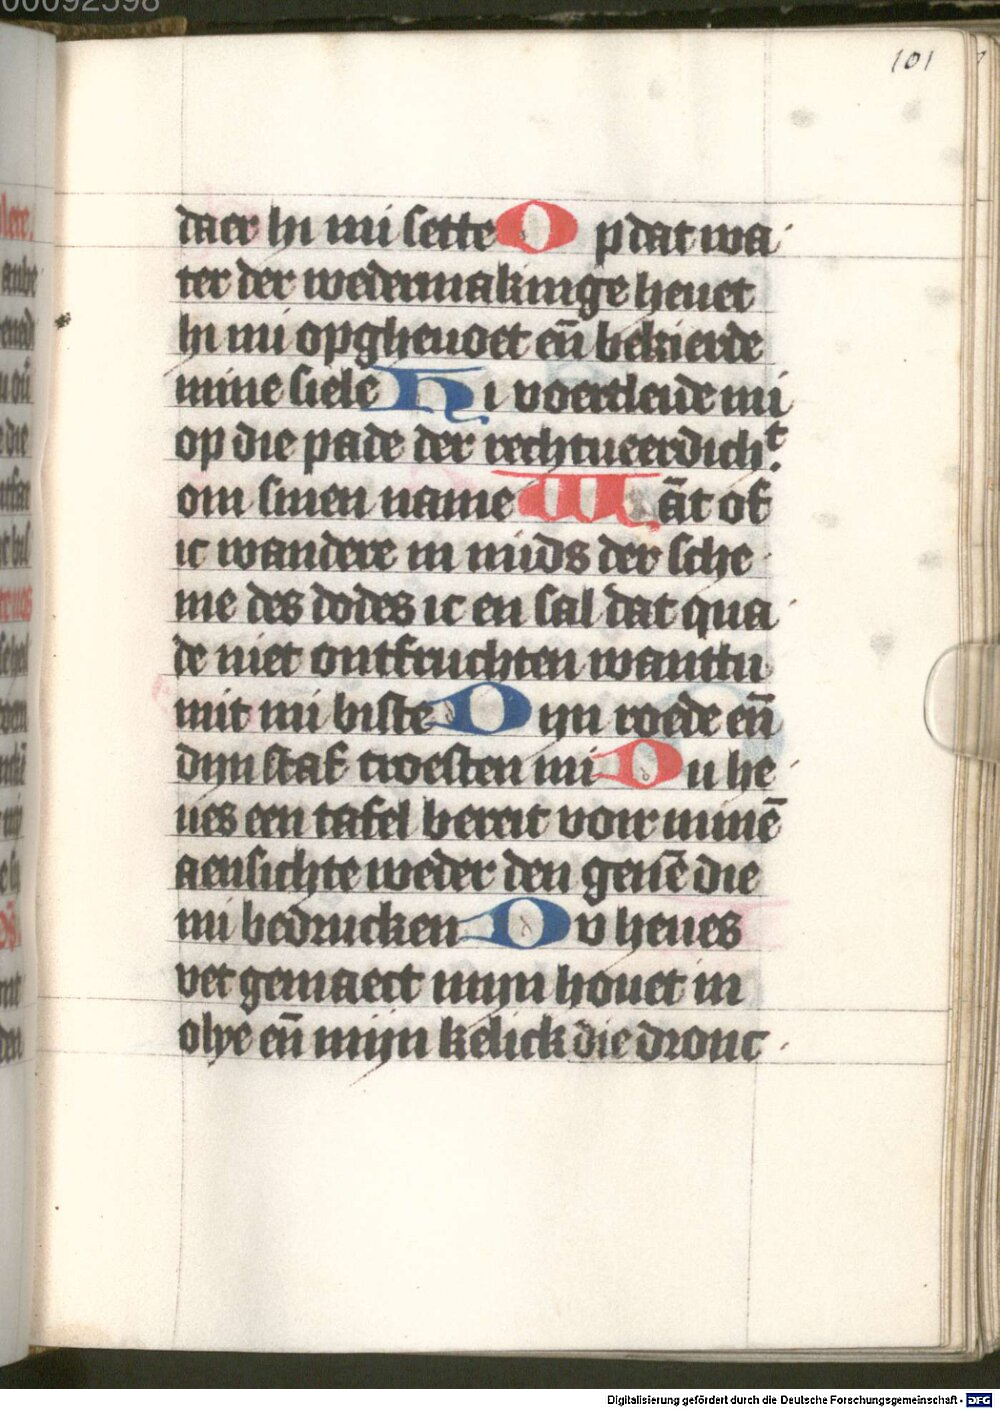 00092598
101
daer hi mi sette Op dat wa
ter der wedermakinge heuet
hi mi opgheuoet en̄ bekierde
mine siele Hi voertleide mi
op die pade der rechtueerdich.t
om sinen name Wāt of
ic wandere in mids der sche
me des dodes ic en sal dat qua
de niet ontfruchten wanttu
mit mi biste Dijn roede en̄
dijn staf troesten mi Du he
ues een tafel bereit voir minē
aensichte weder den genē die
mi bedrucken Dv heues
vet gemaect mijn houet in
olye en̄ mijn kelick die dronc
Digitalisierung gefördert durch die Deutsche Forschungsgemeinschaft - DFG